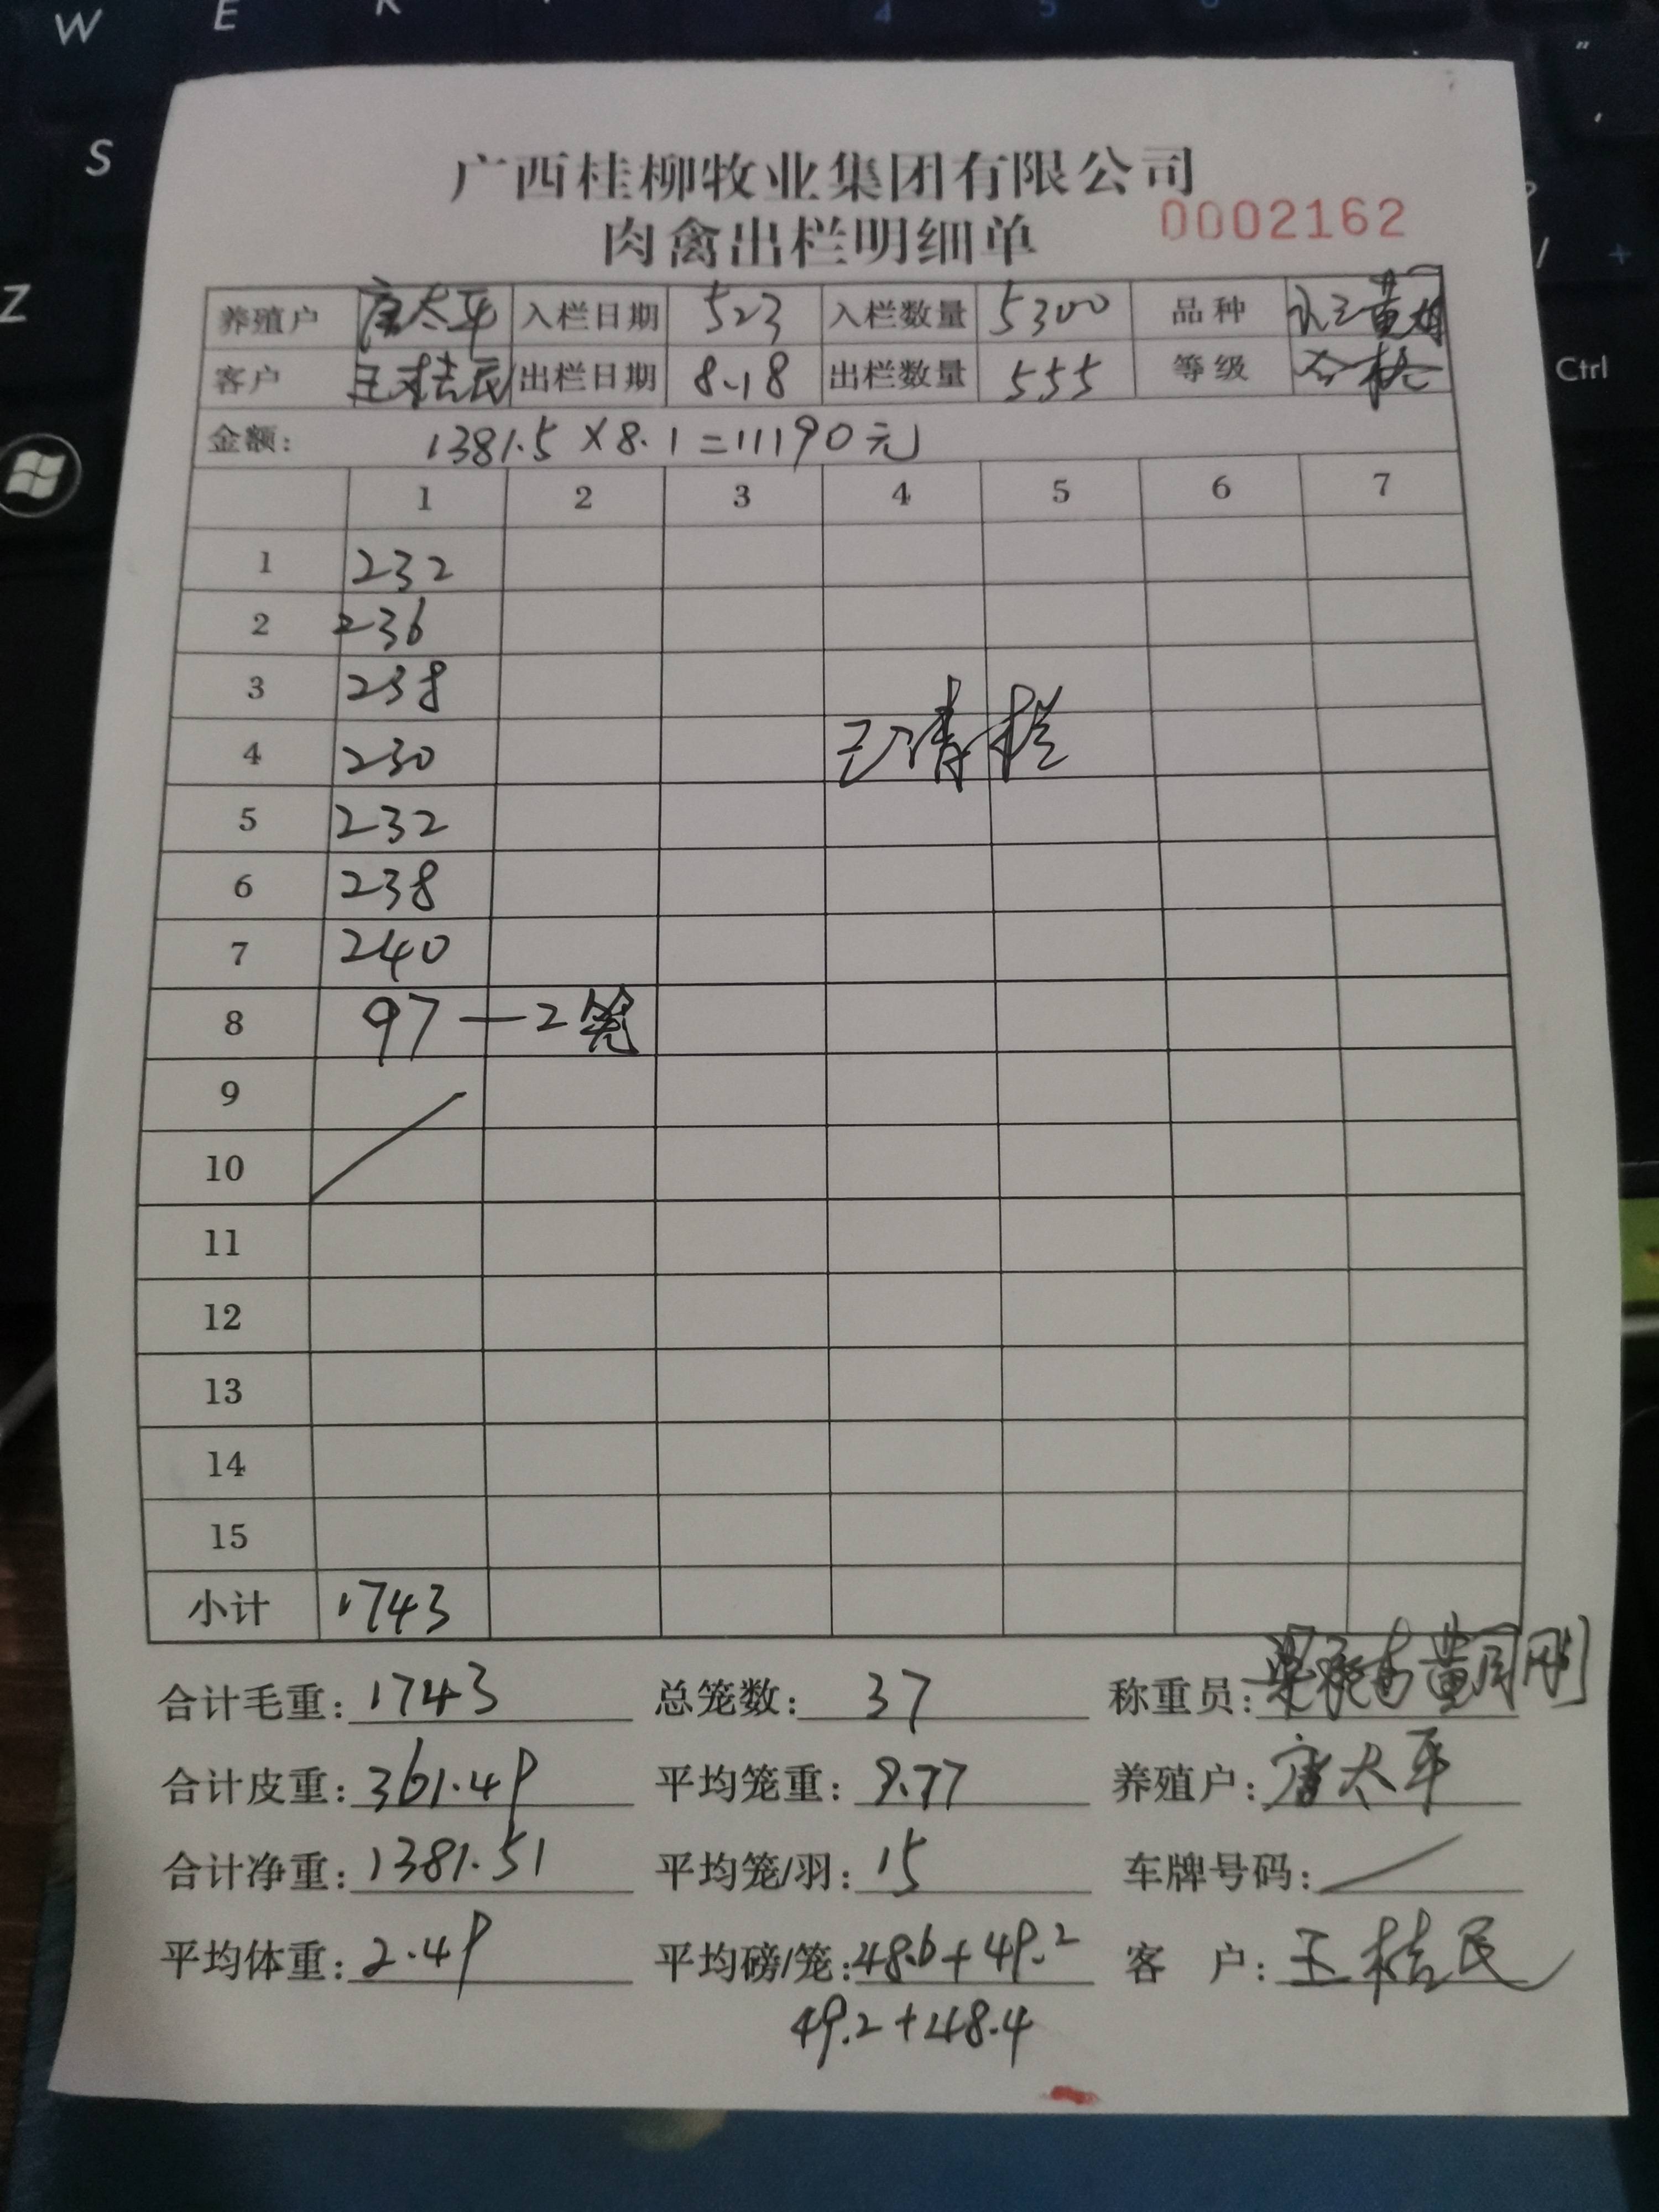 广西桂柳牧业集团有限公司
肉禽出栏明细单 0002162
养殖户 唐太平 入栏日期 523 入栏数量 5300 品种
客户 王桂民 出栏日期 8.18 出栏数量 555 等级 合格
金额: 1381.5×8.1=11190元
1 2 3 4 5 6 7
1 232
2 236
3 238
4 230 已清栏
5 232
6 238
7 240
8 97—2笼
9
10
11
12
13
14
15
小计 1743
合计毛重: 1743 总笼数: 37 称重员:
合计皮重: 361.49 平均笼重: 9.77 养殖户: 唐太平
合计净重: 1381.51 平均笼/羽: 15 车牌号码:
平均体重: 2.49 平均磅/笼: 48.6+49.2 客 户: 王桂民
49.2+48.4
W E R 4 5
S
Z
Ctrl